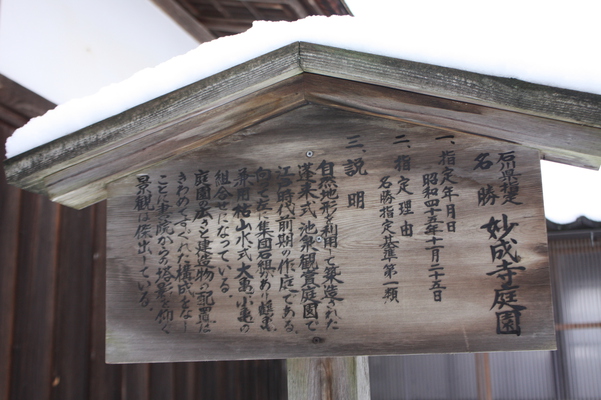 石川県指定
名勝 妙成寺庭園
一、指定年月日
昭和四十三年十月二十五日
二、指定理由
名勝指定基準第一類
三、説明
自然地形を利用して築造された
蓬莱式池泉観賞庭園で
江戸時代前期の作庭である。
向って左に集団石組があり鶴亀
兼用枯山水式大亀小亀の
組合せになっている。
庭園の広さと建造物の配置は
きわめてすぐれた構成をなし
ことに書院から塔影を仰ぐ
景観は傑出している。